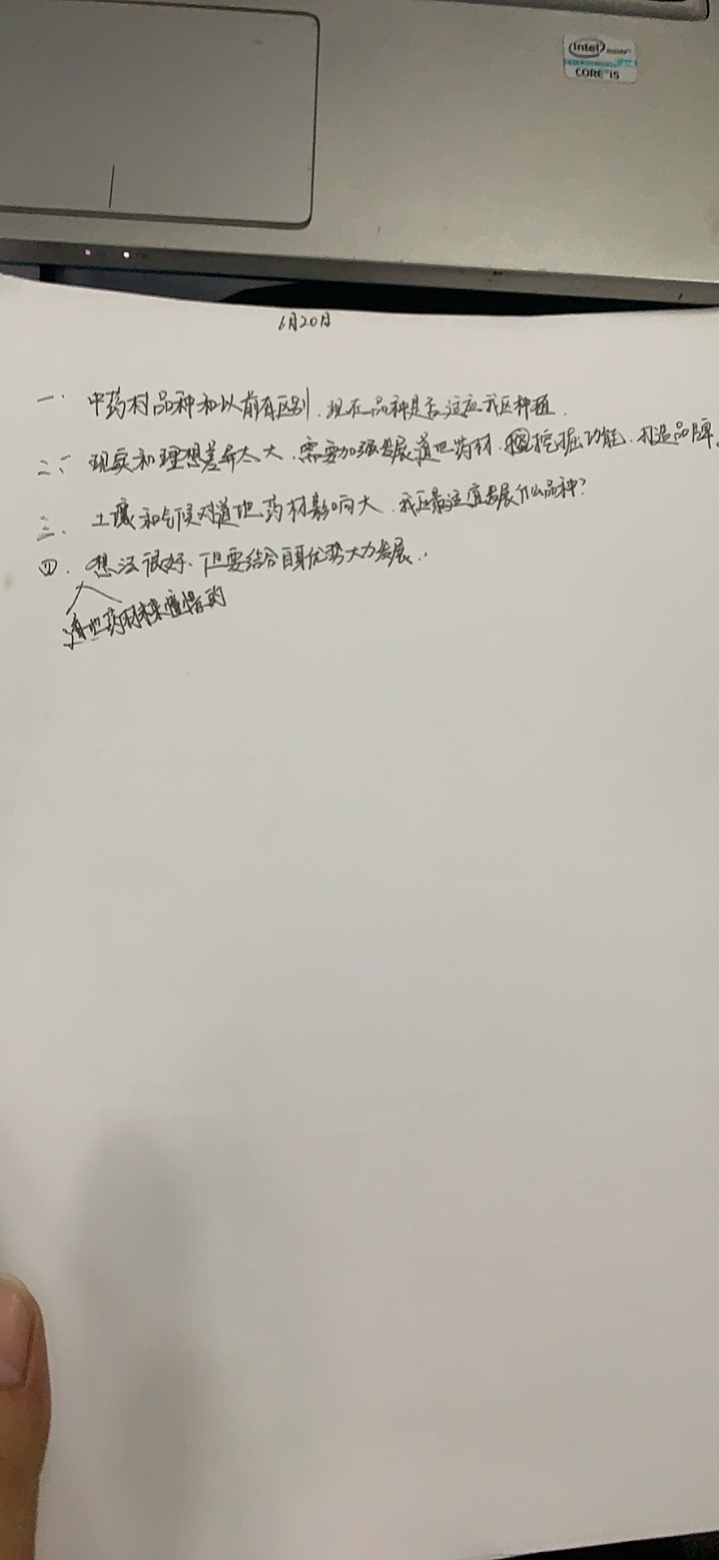 intel
CORE i5
6月20日
一. 中药材品种和以前有区别. 现在品种是否适应我区种植.
二、现实和理想差异太大. 需要加强发展道地药材. 挖掘功能. 打造品牌.
三、土壤和气候对道地药材影响大. 我区最适宜发展什么品种?
四. 想法很好. 但要结合自身优势大力发展..
道地药材未来